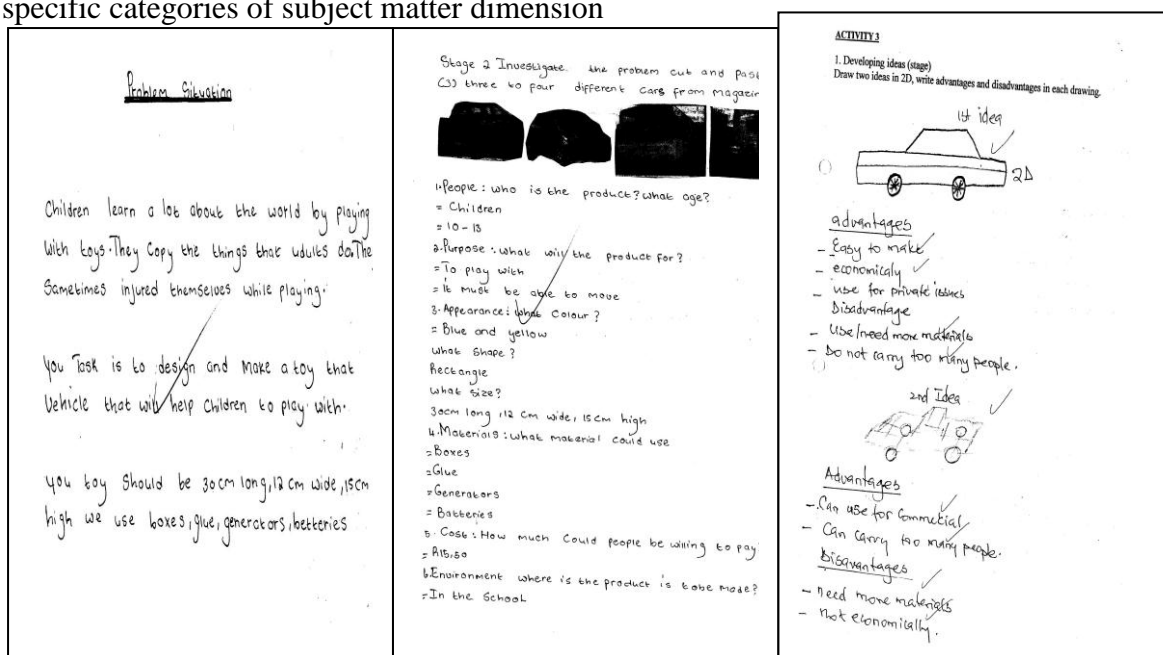 specific categories of subject matter dimension
Problem Situation
Children learn a lot about the world by playing
with toys. They Copy the things that udults do. The
Sametimes injured themselves while playing.
You Task is to design and Make a toy that
Vehicle that will help children to play with.
you toy Should be 30cm long, 12 cm wide, 15cm
high we use boxes, glue, generators, betteries
Stage 2 Investigate the problem cut and Past
(3) three to pour different cars from magazin
1. People : who is the product? what age?
= Children
= 10 - 13
2. Purpose : what will the product for?
= To play with
= It must be able to move
3. Appearance : what Colour ?
= Blue and yellow
what Shape ?
Rectangle
what size?
30cm long , 12 cm wide, 15cm high
4. Materials : what material could use
= Boxes
= Glue
= Generators
= Batteries
5. Cost : How much Could people be willing to pay
= R15,50
6. Environment where is the product is to be made?
= In the School
ACTIVITY 3
1. Developing ideas (stage)
Draw two ideas in 2D, write advantages and disadvantages in each drawing.
1st idea
2D
advantages
- Easy to make
- economicaly
- use for private issues
Disadvantage
- Use/need more materials
- Do not carry too many people.
2nd Idea
Advantages
- Can use for Commecial
- Can carry too many people.
Disavantages
- need more materials
- not economically.